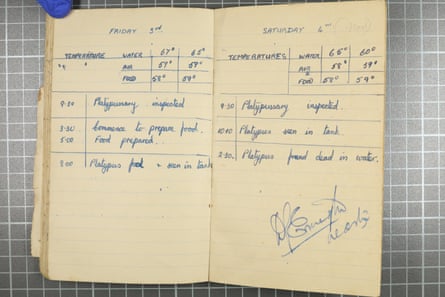 FRIDAY 3rd
TEMPERATURE WATER 67° 65°
" " AIR 57° 59°
FOOD 58° 59°
9.30 Platypussary inspected
3.30 Commence to prepare food.
5.00 Food prepared.
8.00 Platypus fed & seen in tank
SATURDAY 4th
TEMPERATURES WATER 65° 60°
AIR 58° 59°
FOOD 58° 59°
9.30 Platypussary inspected.
10.10 Platypus seen in tank.
2.30. Platypus found dead in water.